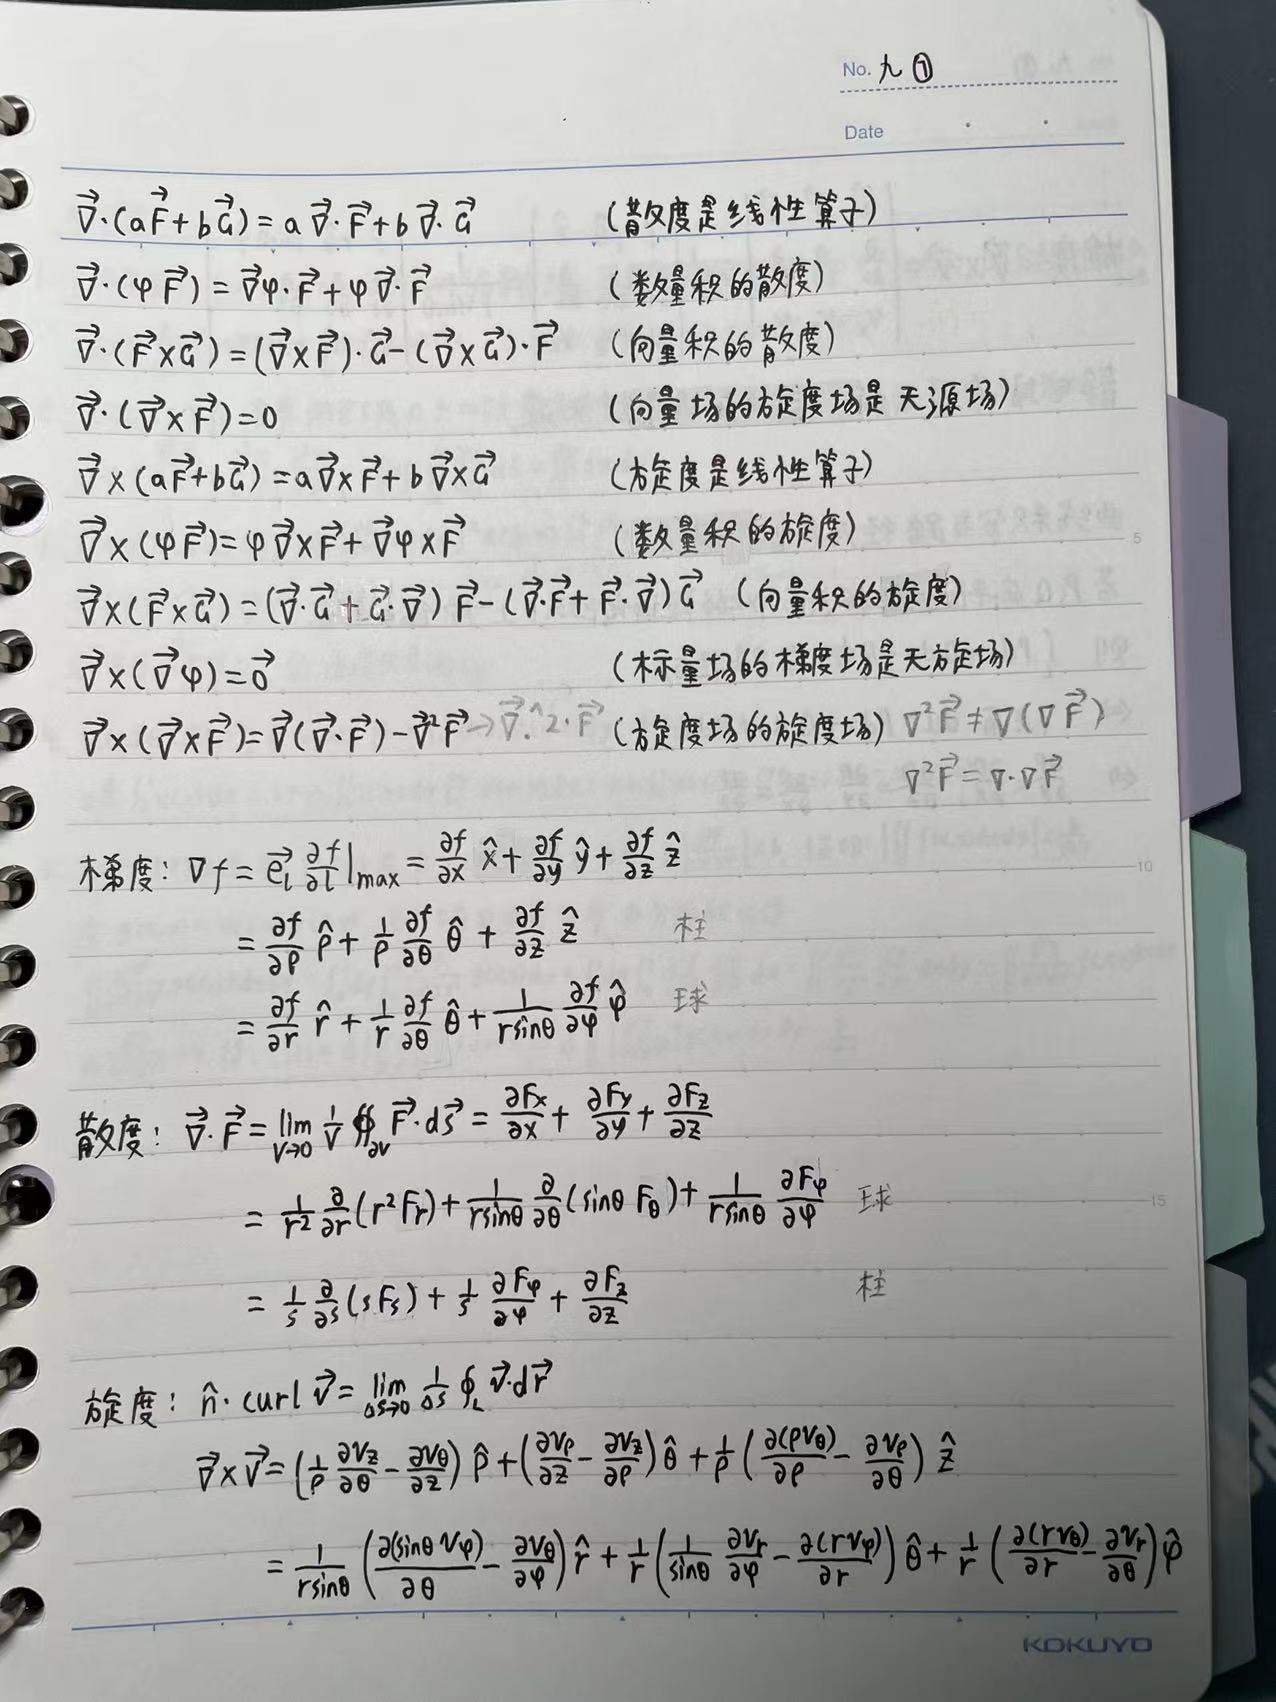 No. 九 ①
Date
∇⃗·(aF⃗+bG⃗)=a∇⃗·F⃗+b∇⃗·G⃗ (散度是线性算子)
∇⃗·(φF⃗)=∇⃗φ·F⃗+φ∇⃗·F⃗ (数量积的散度)
∇⃗·(F⃗×G⃗)=(∇⃗×F⃗)·G⃗-(∇⃗×G⃗)·F⃗ (向量积的散度)
∇⃗·(∇⃗×F⃗)=0 (向量场的旋度场是无源场)
∇⃗×(aF⃗+bG⃗)=a∇⃗×F⃗+b∇⃗×G⃗ (旋度是线性算子)
∇⃗×(φF⃗)=φ∇⃗×F⃗+∇⃗φ×F⃗ (数量积的旋度)
∇⃗×(F⃗×G⃗)=(∇⃗·G⃗+G⃗·∇⃗)F⃗-(∇⃗·F⃗+F⃗·∇⃗)G⃗ (向量积的旋度)
∇⃗×(∇⃗φ)=0⃗ (标量场的梯度场是无旋场)
∇⃗×(∇⃗×F⃗)=∇⃗(∇⃗·F⃗)-∇⃗²F⃗→∇⃗.^2·F⃗ (旋度场的旋度场) ∇²F⃗≠∇(∇F⃗)
∇²F⃗=∇·∇F⃗
梯度: ∇f=e⃗_l ∂f/∂l|max=∂f/∂x x̂+∂f/∂y ŷ+∂f/∂z ẑ
=∂f/∂ρ ρ̂+1/ρ ∂f/∂θ θ̂+∂f/∂z ẑ 柱
=∂f/∂r r̂+1/r ∂f/∂θ θ̂+1/(rsinθ) ∂f/∂φ φ̂ 球
散度: ∇⃗·F⃗=lim_{V→0} 1/V ∯_{∂V} F⃗·dS⃗=∂Fx/∂x+∂Fy/∂y+∂Fz/∂z
=1/r² ∂/∂r(r²Fr)+1/(rsinθ) ∂/∂θ(sinθ Fθ)+1/(rsinθ) ∂Fφ/∂φ 球
=1/s ∂/∂s(sFs)+1/s ∂Fφ/∂φ+∂Fz/∂z 柱
旋度: n̂·curl v⃗=lim_{ΔS→0} 1/ΔS ∮_L v⃗·dr⃗
∇⃗×V⃗=(1/ρ ∂Vz/∂θ-∂Vθ/∂z)ρ̂+(∂Vρ/∂z-∂Vz/∂ρ)θ̂+1/ρ(∂(ρVθ)/∂ρ-∂Vρ/∂θ)ẑ
=1/(rsinθ)(∂(sinθVφ)/∂θ-∂Vθ/∂φ)r̂+1/r(1/sinθ ∂Vr/∂φ-∂(rVφ)/∂r)θ̂+1/r(∂(rVθ)/∂r-∂Vr/∂θ)φ̂
KOKUYO